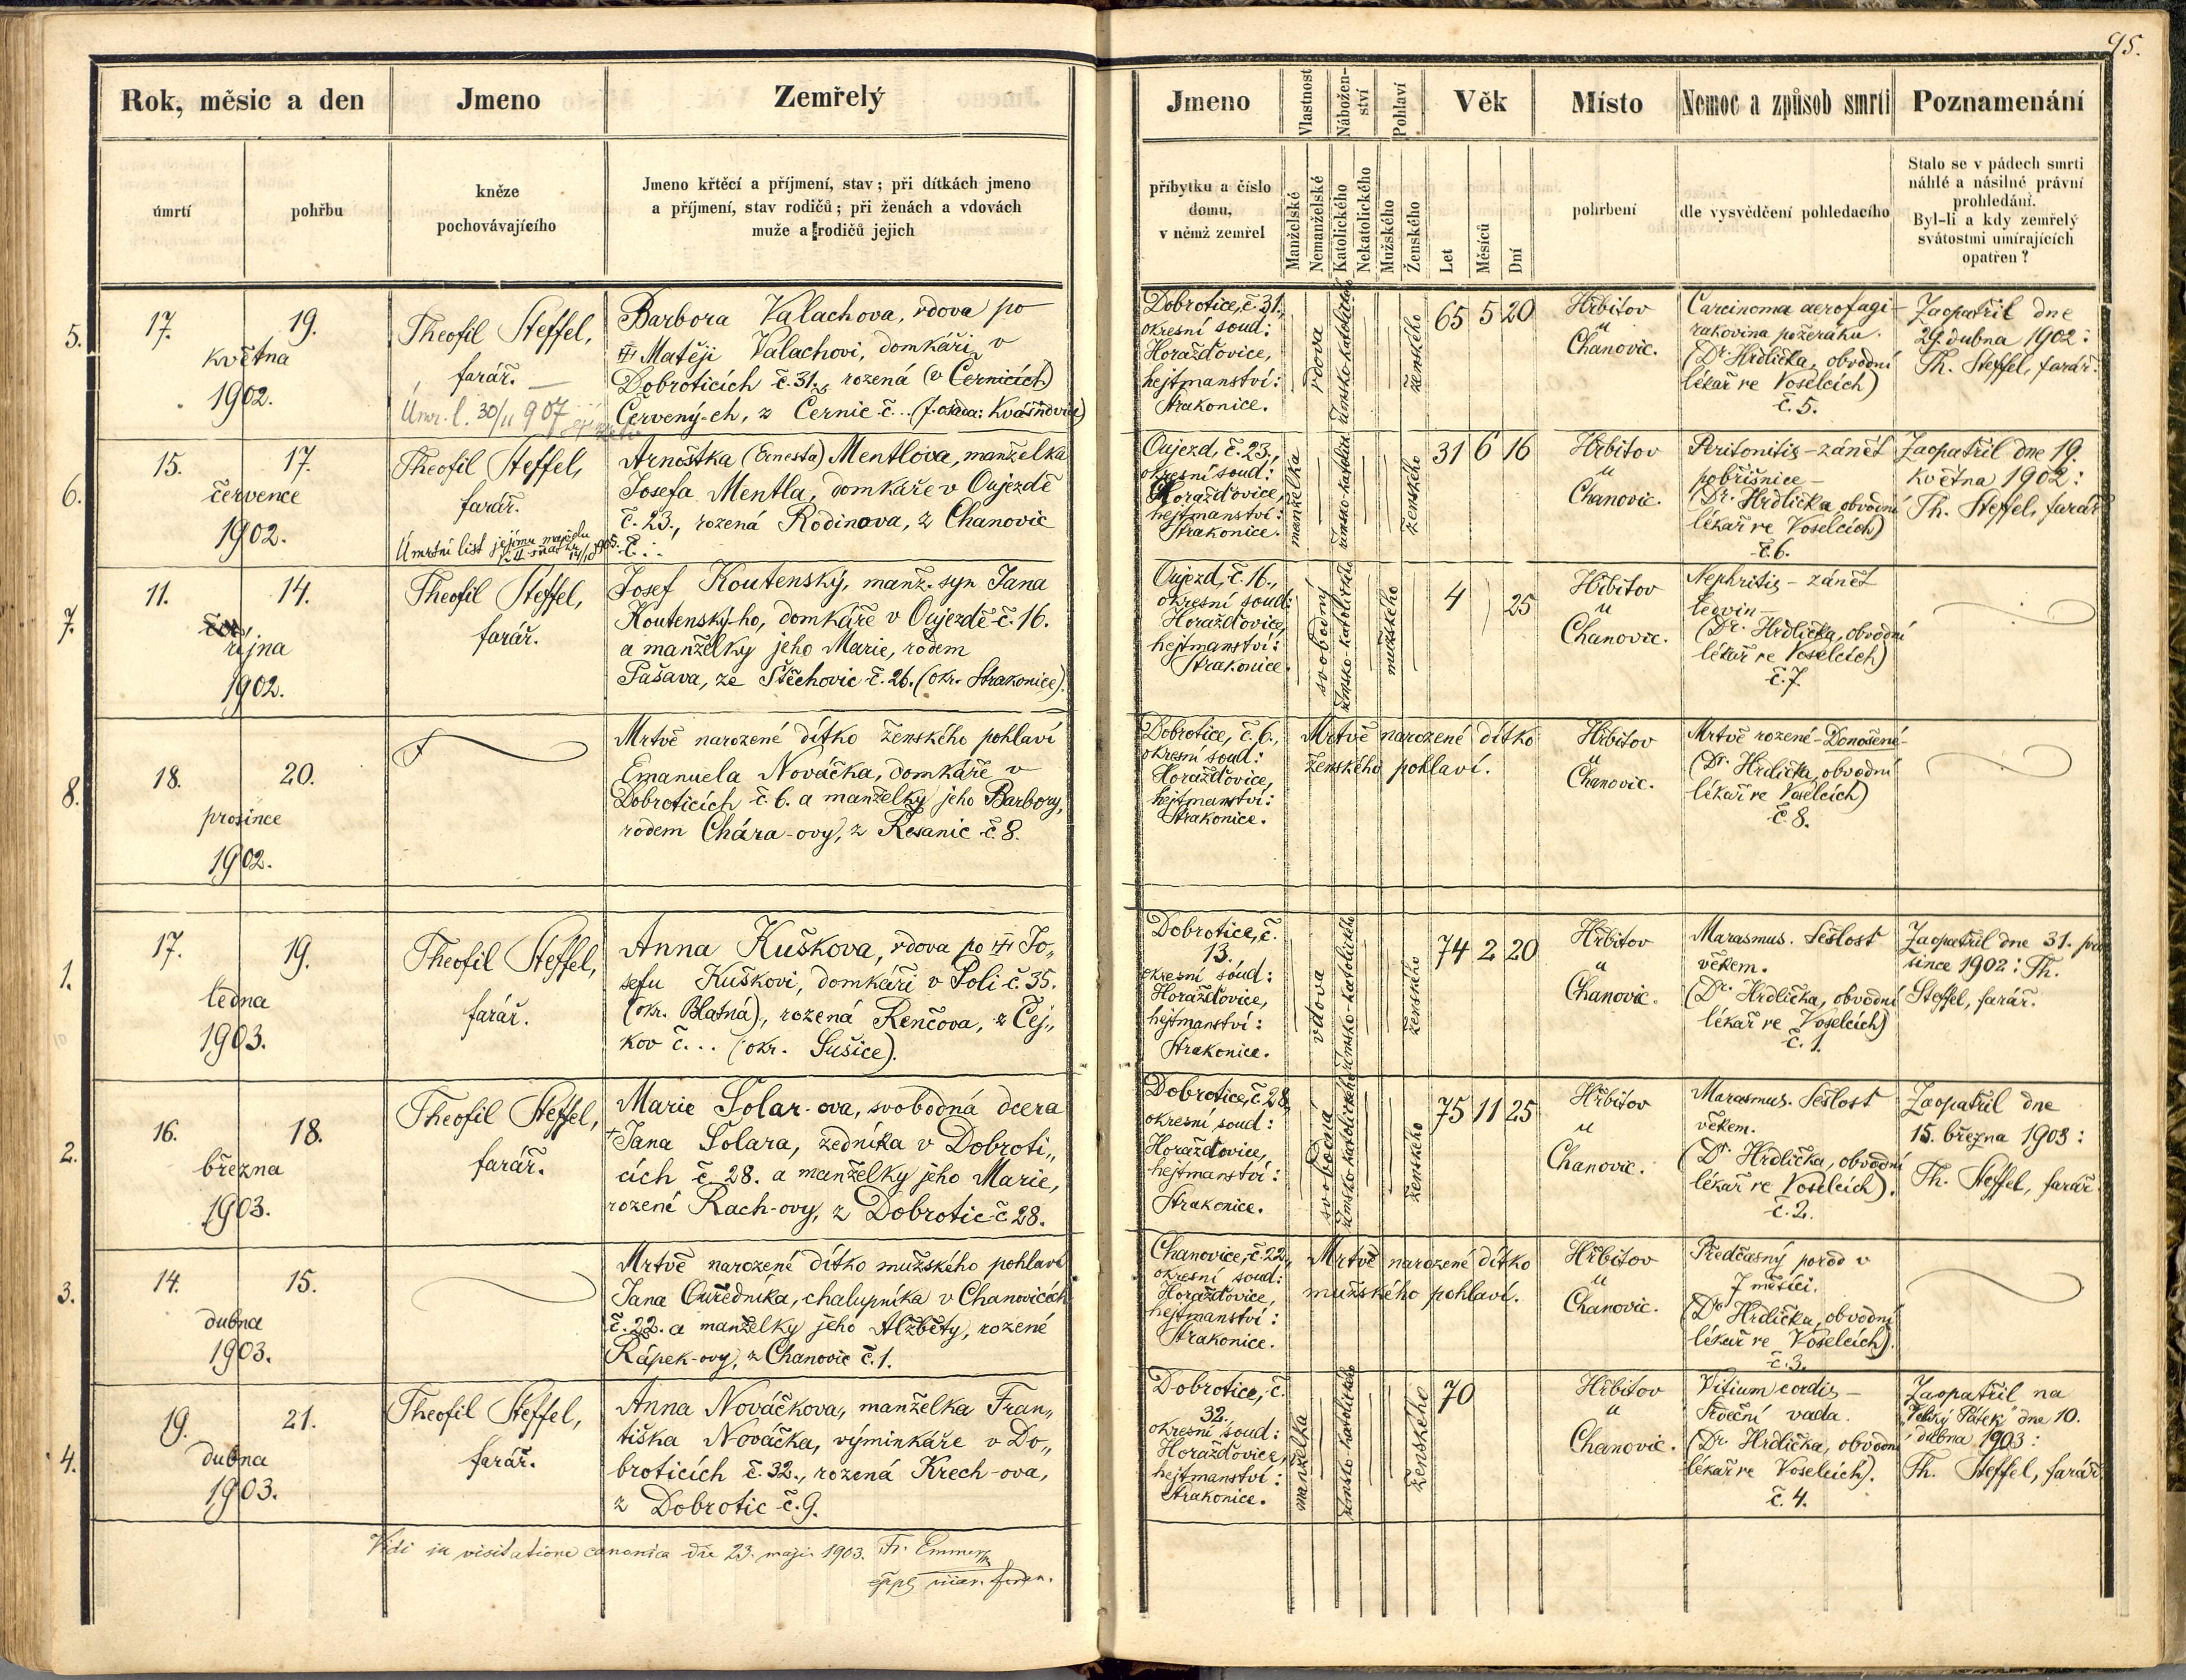 95.
Rok, měsic a den
Jmeno
Zemřelý
úmrtí
pohřbu
kněze
pochovávajícího
Jmeno křtěcí a příjmení, stav; při dítkách jmeno
a příjmení, stav rodičů; při ženách a vdovách
muže a rodičů jejich
5.
17.
19.
května
1902.
Theofil Steffel,
farář.
Úmr. l. 30/11 907
Barbora Valachova, vdova po
Matěji Valachovi, domkáři v
Dobroticích č. 31., rozená (v Černicích)
Červený-ch, z Černic č.. (f. osada: Kvášňovice)
6.
15.
17.
července
1902.
Theofil Steffel,
farář.
Úmrtní list jejímu manželu
14/10 905.
Arnoštka (Ernesta) Mentlova, manželka
Josefa Mentla, domkáře v Oujezdě
č. 23., rozená Rodinova, z Chanovic
č...
7.
11.
14.
října
1902.
Theofil Steffel,
farář.
Josef Koutenský, manž. syn Jana
Koutenský-ho, domkáře v Oujezdě č. 16.
a manželky jeho Marie, rodem
Pašava, ze Štěchovic č. 26. (okr. Strakonice).
8.
18.
20.
prosince
1902.
Mrtvě narozené dítko ženského pohlaví
Emanuela Nováčka, domkáře v
Dobroticích č. 6. a manželky jeho Barbory,
rodem Chára-ovy, z Řesanic č 8.
1.
17.
19.
ledna
1903.
Theofil Steffel,
farář.
Anna Kuškova, vdova po Jo„
sefu Kuškovi, domkáři v Poli č. 35.
(okr. Blatná), rozená Renčova, z Čej„
kov č... (okr. Sušice).
2.
16.
18.
března
1903.
Theofil Steffel,
farář.
Marie Solar-ova, svobodná dcera
†Jana Solara, zedníka v Dobroti„
cích č. 28. a manželky jeho Marie,
rozené Rach-ovy, z Dobrotic č 28.
3.
14.
15.
dubna
1903.
Mrtvě narozené dítko mužského pohlaví
Jana Ouředníka, chalupníka v Chanovicích
č. 22. a manželky jeho Alžběty, rozené
Rápek-ovy, z Chanovic č. 1.
4.
19.
21.
dubna
1903.
Theofil Steffel,
farář.
Anna Nováčkova, manželka Fran„
tiška Nováčka, výminkáře v Do„
broticích č. 32., rozená Krech-ova,
z Dobrotic č. 9.
Vidi in visitatione canonica die 23. maji 1903. Fr. Emmer
Jmeno
Vlastnost
Nábožen-
ství
Pohlaví
Věk
Místo
Nemoc a způsob smrti
Poznamenání
příbytku a číslo
domu,
v němž zemřel
Manželské
Nemanželské
Katolického
Nekatolického
Mužského
Ženského
Let
Měsíců
Dní
pohrbení
dle vysvědčení pohledacího
Stalo se v pádech smrti
náhlé a násilné právní
prohledání.
Byl-li a kdy zemřelý
svátostmi umírajících
opatřen?
Dobrotice, č. 31.,
okresní soud:
Horažďovice,
hejtmanství:
Strakonice.
vdova
římsko-katolické
ženského
65 5 20
Hřbitov
u
Chanovic.
Carcinoma aerofagi-
rakovina požeráku.
(Dr. Hrdlička, obvodní
lékař ve Voselcích)
č. 5.
Zaopatřil dne
29. dubna 1902:
Th. Steffel, farář.
Oujezd, č. 23.,
okresní soud:
Horažďovice,
hejtmanství:
Strakonice.
manželka
římsko-katolické
ženského
31 6 16
Hřbitov
u
Chanovic.
Peritonitis – zánět
pobřišnice –
(Dr. Hrdlička, obvodní
lékař ve Voselcích)
č. 6.
Zaopatřil dne 19.
května 1902:
Th. Steffel, farář
Oujezd, č. 16.,
okresní soud:
Horažďovice,
hejtmanství:
Strakonice.
svobodný
římsko-katolické
mužského
4 25
Hřbitov
u
Chanovic.
Nephritis – zánět
ledvin –
(Dr. Hrdlička, obvodní
lékař ve Voselcích)
č. 7.
Dobrotice, č. 6.,
okresní soud:
Horažďovice,
hejtmanství:
Strakonice.
Mrtvě narozené dítko
ženského pohlaví.
Hřbitov
u
Chanovic.
Mrtvě rozené – Donošené –
(Dr. Hrdlička, obvodní
lékař ve Voselcích)
č. 8.
Dobrotice, č.
13.
okresní soud:
Horažďovice,
hejtmanství:
Strakonice.
vdova
římsko-katolického
ženského
74 2 20
Hřbitov
u
Chanovic.
Marasmus. Sešlost
věkem.
(Dr. Hrdlička, obvodní
lékař ve Voselcích)
č. 1.
Zaopatřil dne 31. pro
since 1902: Th.
Steffel, farář.
Dobrotice, č 28,
okresní soud:
Horažďovice,
hejtmanství:
Strakonice.
svobodná
římsko-katolického
ženského
75 11 25
Hřbitov
u
Chanovic.
Marasmus. Sešlost
věkem.
(Dr. Hrdlička, obvodní
lékař ve Voselcích).
č. 2.
Zaopatřil dne
15. března 1903:
Th. Steffel, farář.
Chanovice, č. 22.,
okresní soud:
Horažďovice,
hejtmanství:
Strakonice.
Mrtvě narozené dítko
mužského pohlaví.
Hřbitov
u
Chanovic.
Předčasný porod v
7 měsíci.
(Dr. Hrdlička, obvodní
lékař ve Voselcích).
č. 3.
Dobrotice, č.
32.
okresní soud:
Horažďovice,
hejtmanství:
Strakonice.
manželka
římsko-katolického
ženského
70
Hřbitov
u
Chanovic.
Vitium cordis –
Srdeční vada.
(Dr. Hrdlička, obvodní
lékař ve Voselcích).
č. 4.
Zaopatřil na
„Velký Pátek“ dne 10.
dubna 1903:
Th. Steffel, farář.